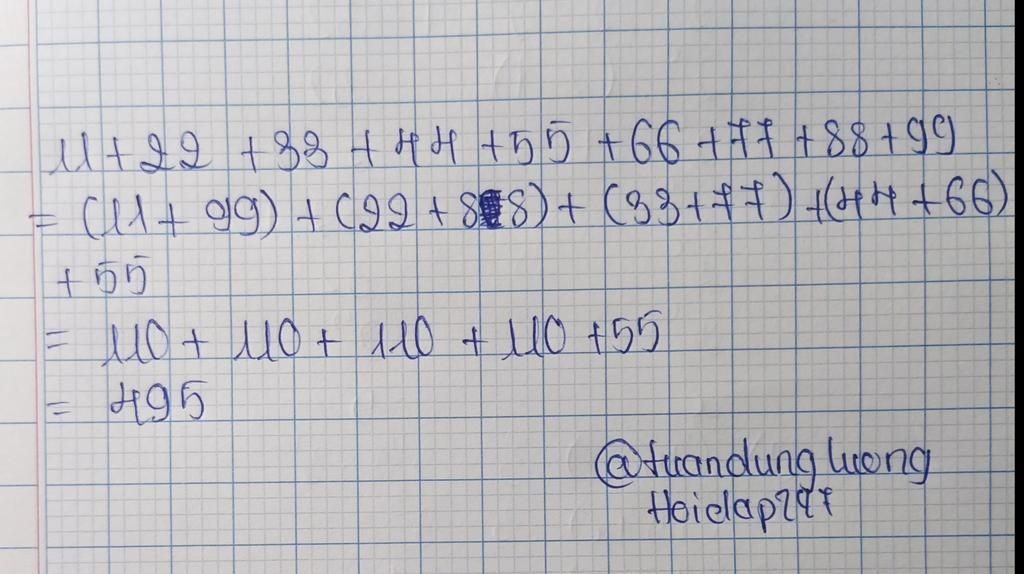 11 + 22 + 33 + 44 + 55 + 66 + 77 + 88 + 99
= (11 + 99) + (22 + 88) + (33 + 77) + (44 + 66)
+ 55
= 110 + 110 + 110 + 110 + 55
= 495
@tuandungluong
Hoidap247